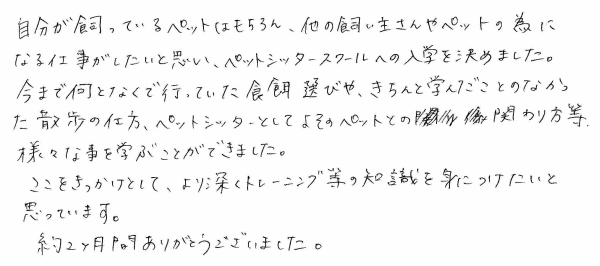 自分が飼っているペットはもちろん、他の飼い主さんやペットの為に
なる仕事がしたいと思い、ペットシッタースクールへの入学を決めました。
今まで何となくで行っていた食餌選びや、きちんと学んだことのなかっ
た散歩の仕方、ペットシッターとしてよそのペットとの関わり方等、
様々な事を学ぶことができました。
ここをきっかけとして、より深くトレーニング等の知識を身につけたいと
思っています。
約2ヶ月間ありがとうございました。